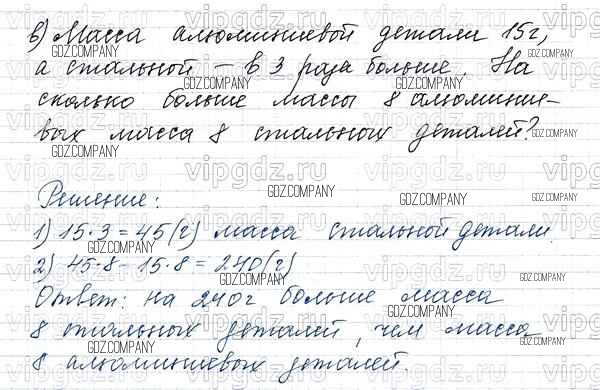 в) Масса алюминиевой детали 15г,
а стальной – в 3 раза больше. На
сколько больше массы 8 алюминие-
вых масса 8 стальных деталей?
Решение:
1) 15·3=45(г) масса стальной детали.
2) 45·8-15·8=240(г)
Ответ: на 240г больше масса
8 стальных деталей, чем масса
8 алюминиевых деталей.